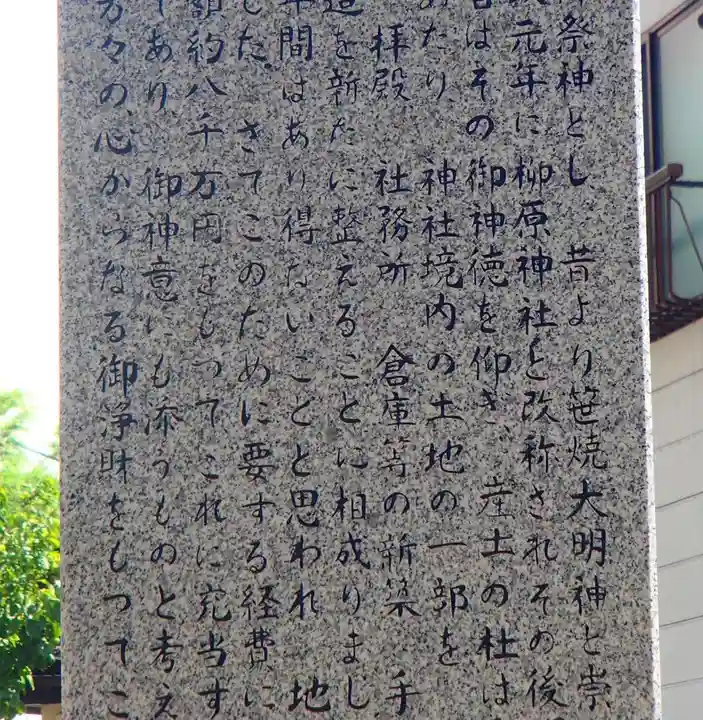 祭神とし 昔より笹焼大明神と崇
元年に柳原神社と改称されその後
はその御神徳を仰ぎ、産土の杜は
めたり、神社境内の土地の一部を
拝殿 社務所 倉庫等の新築 手
造を新たに整えることに相成りまし
年間はあり得ないことと思われ 地
した、さてこのために要する経費に
額約八千万円をもつてこれに充当す
であり 御神意にも添うものと考え
方々の心からなる御浄財をもつてこ